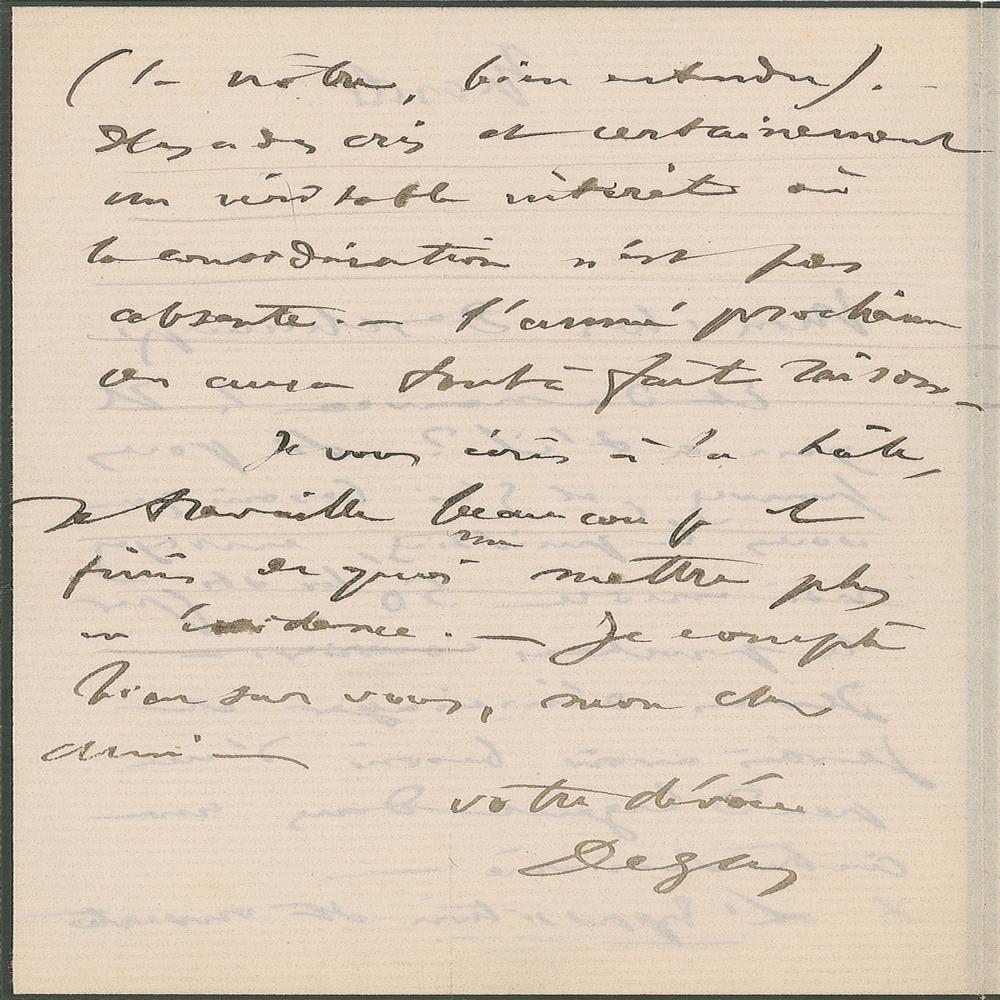 (la nôtre, bien entendu).
Il y a des cris et certainement
un véritable intérêt où
la considération n'est pas
absente. — l'année prochaine
on aura tout à fait raison —
Je vous écris à la hâte,
Je travaille beaucoup et
finis de quoi me mettre plus
en évidence. — Je compte
bien sur vous, mon cher
ami —
votre dévoué
Degas